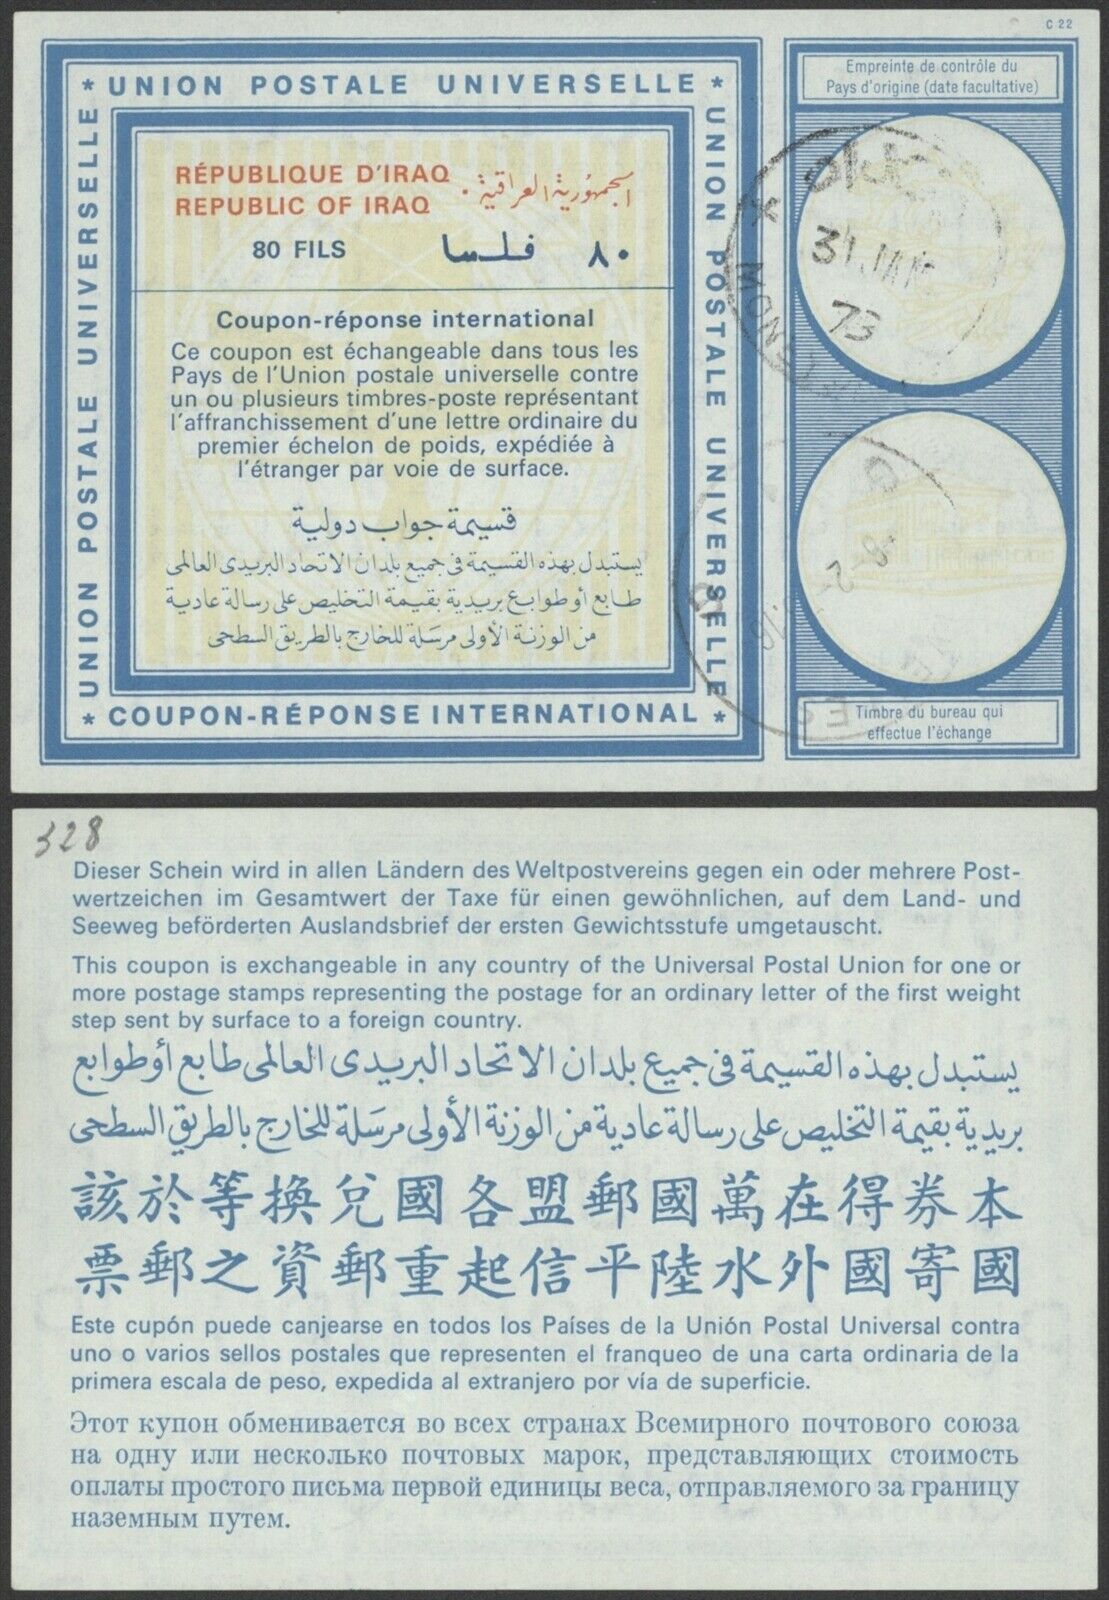 C 22
Empreinte de contrôle du
Pays d'origine (date facultative)
* UNION POSTALE UNIVERSELLE *
UNION POSTALE UNIVERSELLE
UNION POSTALE UNIVERSELLE
RÉPUBLIQUE D'IRAQ
REPUBLIC OF IRAQ
الجمهورية العراقية
80 FILS
٨٠ فلسا
Coupon-réponse international
Ce coupon est échangeable dans tous les
Pays de l'Union postale universelle contre
un ou plusieurs timbres-poste représentant
l'affranchissement d'une lettre ordinaire du
premier échelon de poids, expédiée à
l'étranger par voie de surface.
قسيمة جواب دولية
يستبدل بهذه القسيمة في جميع بلدان الاتحاد البريدى العالمى
طابع أو طوابع بريدية بقيمة التخليص على رسالة عادية
من الوزنة الأولى مرسلة للخارج بالطريق السطحى
* COUPON-RÉPONSE INTERNATIONAL *
31 JAN
73
Timbre du bureau qui
effectue l'échange
328
Dieser Schein wird in allen Ländern des Weltpostvereins gegen ein oder mehrere Post-
wertzeichen im Gesamtwert der Taxe für einen gewöhnlichen, auf dem Land- und
Seeweg beförderten Auslandsbrief der ersten Gewichtsstufe umgetauscht.
This coupon is exchangeable in any country of the Universal Postal Union for one or
more postage stamps representing the postage for an ordinary letter of the first weight
step sent by surface to a foreign country.
يستبدل بهذه القسيمة في جميع بلدان الاتحاد البريدى العالمى طابع أو طوابع
بريدية بقيمة التخليص على رسالة عادية من الوزنة الأولى مرسلة للخارج بالطريق السطحى
該於等換兌國各盟郵國萬在得券本
票郵之資郵重起信平陸水外國寄國
Este cupón puede canjearse en todos los Países de la Unión Postal Universal contra
uno o varios sellos postales que representen el franqueo de una carta ordinaria de la
primera escala de peso, expedida al extranjero por vía de superficie.
Этот купон обменивается во всех странах Всемирного почтового союза
на одну или несколько почтовых марок, представляющих стоимость
оплаты простого письма первой единицы веса, отправляемого за границу
наземным путем.